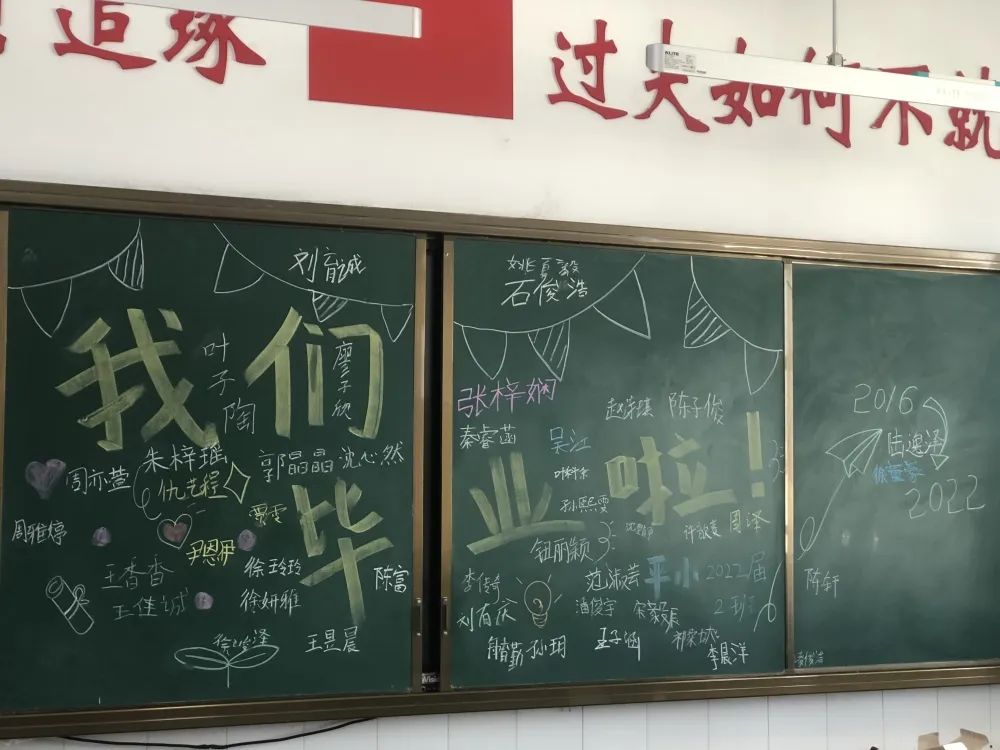 追琢
过失如何不就
KLITE
刘育诚
我们
叶子陶
廖子欣
朱梓瑶
周亦萱
仇艺程
郭晶晶
沈心然
毕
周雅婷
尹恩伊
王香香
徐玲玲
陈富
王佳诚
徐妍雅
王昱晨
姚夏毅
石俊浩
张梓娴
赵荣琪
陈子俊
秦睿菡
吴江
业啦!
孙熙雯
许敬萱
周泽
钮丽颖
李传奇
范淑芸
平小2022届
刘有庆
潘俊宇
宋毅辰
2班
孙玥
王子涵
李晨洋
2016
陆逸泽
2022
陈轩